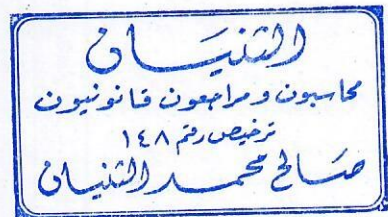 الثنيان
محاسبون ومراجعون قانونيون
ترخيص رقم ١٤٨
صالح محمد الثنيان